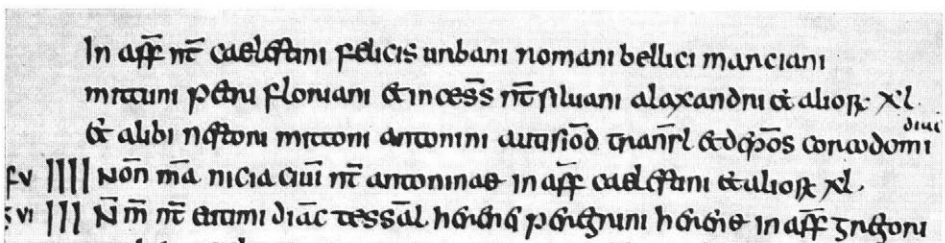 diui
In aff̄ nt̄ caelestini felicis urbani romani bellici marciani
mitturi petri floriani et in cess̄ nt̄ siluani alaxandri et alioꝝ xl.
et alibi nestori mittoni antonini autisiōd tranr̄l et dep̄os concodomi
fv IIII Nōn mā nicia ciūi nt̄ antoninae in aff̄ caelestini et alioꝝ xl.
vi III N̄ m̄ nt̄ eutimi diāc tessāl peregrini in aff̄ gregori